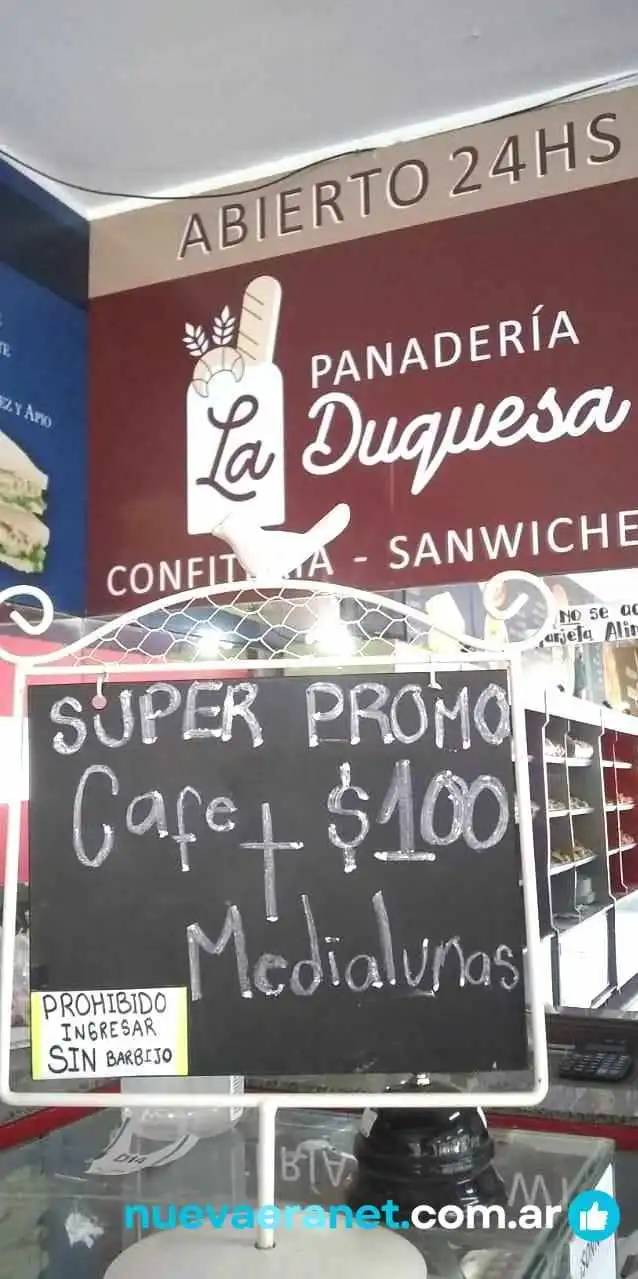 ABIERTO 24HS
PANADERÍA
La Duquesa
CONFIT - SANWICHE
EZ Y APIO
NO se
Tarjeta Alim
SUPER PROMO
Cafe $100
+
Medialunas
PROHIBIDO
INGRESAR
SIN BARBIJO
nuevaeranet.com.ar